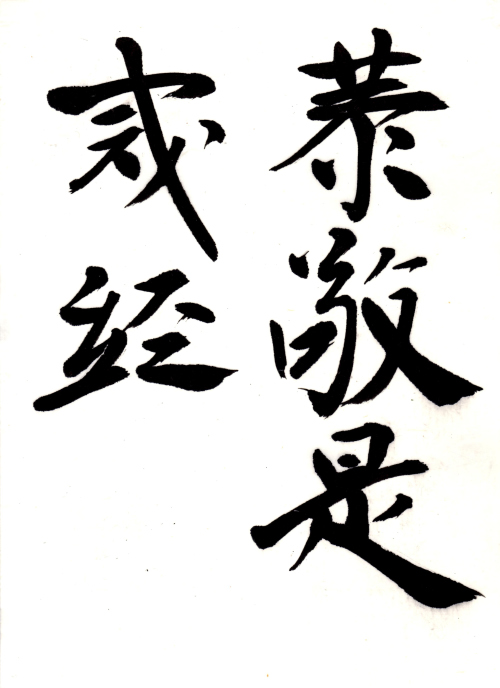 恭敬是
戒經